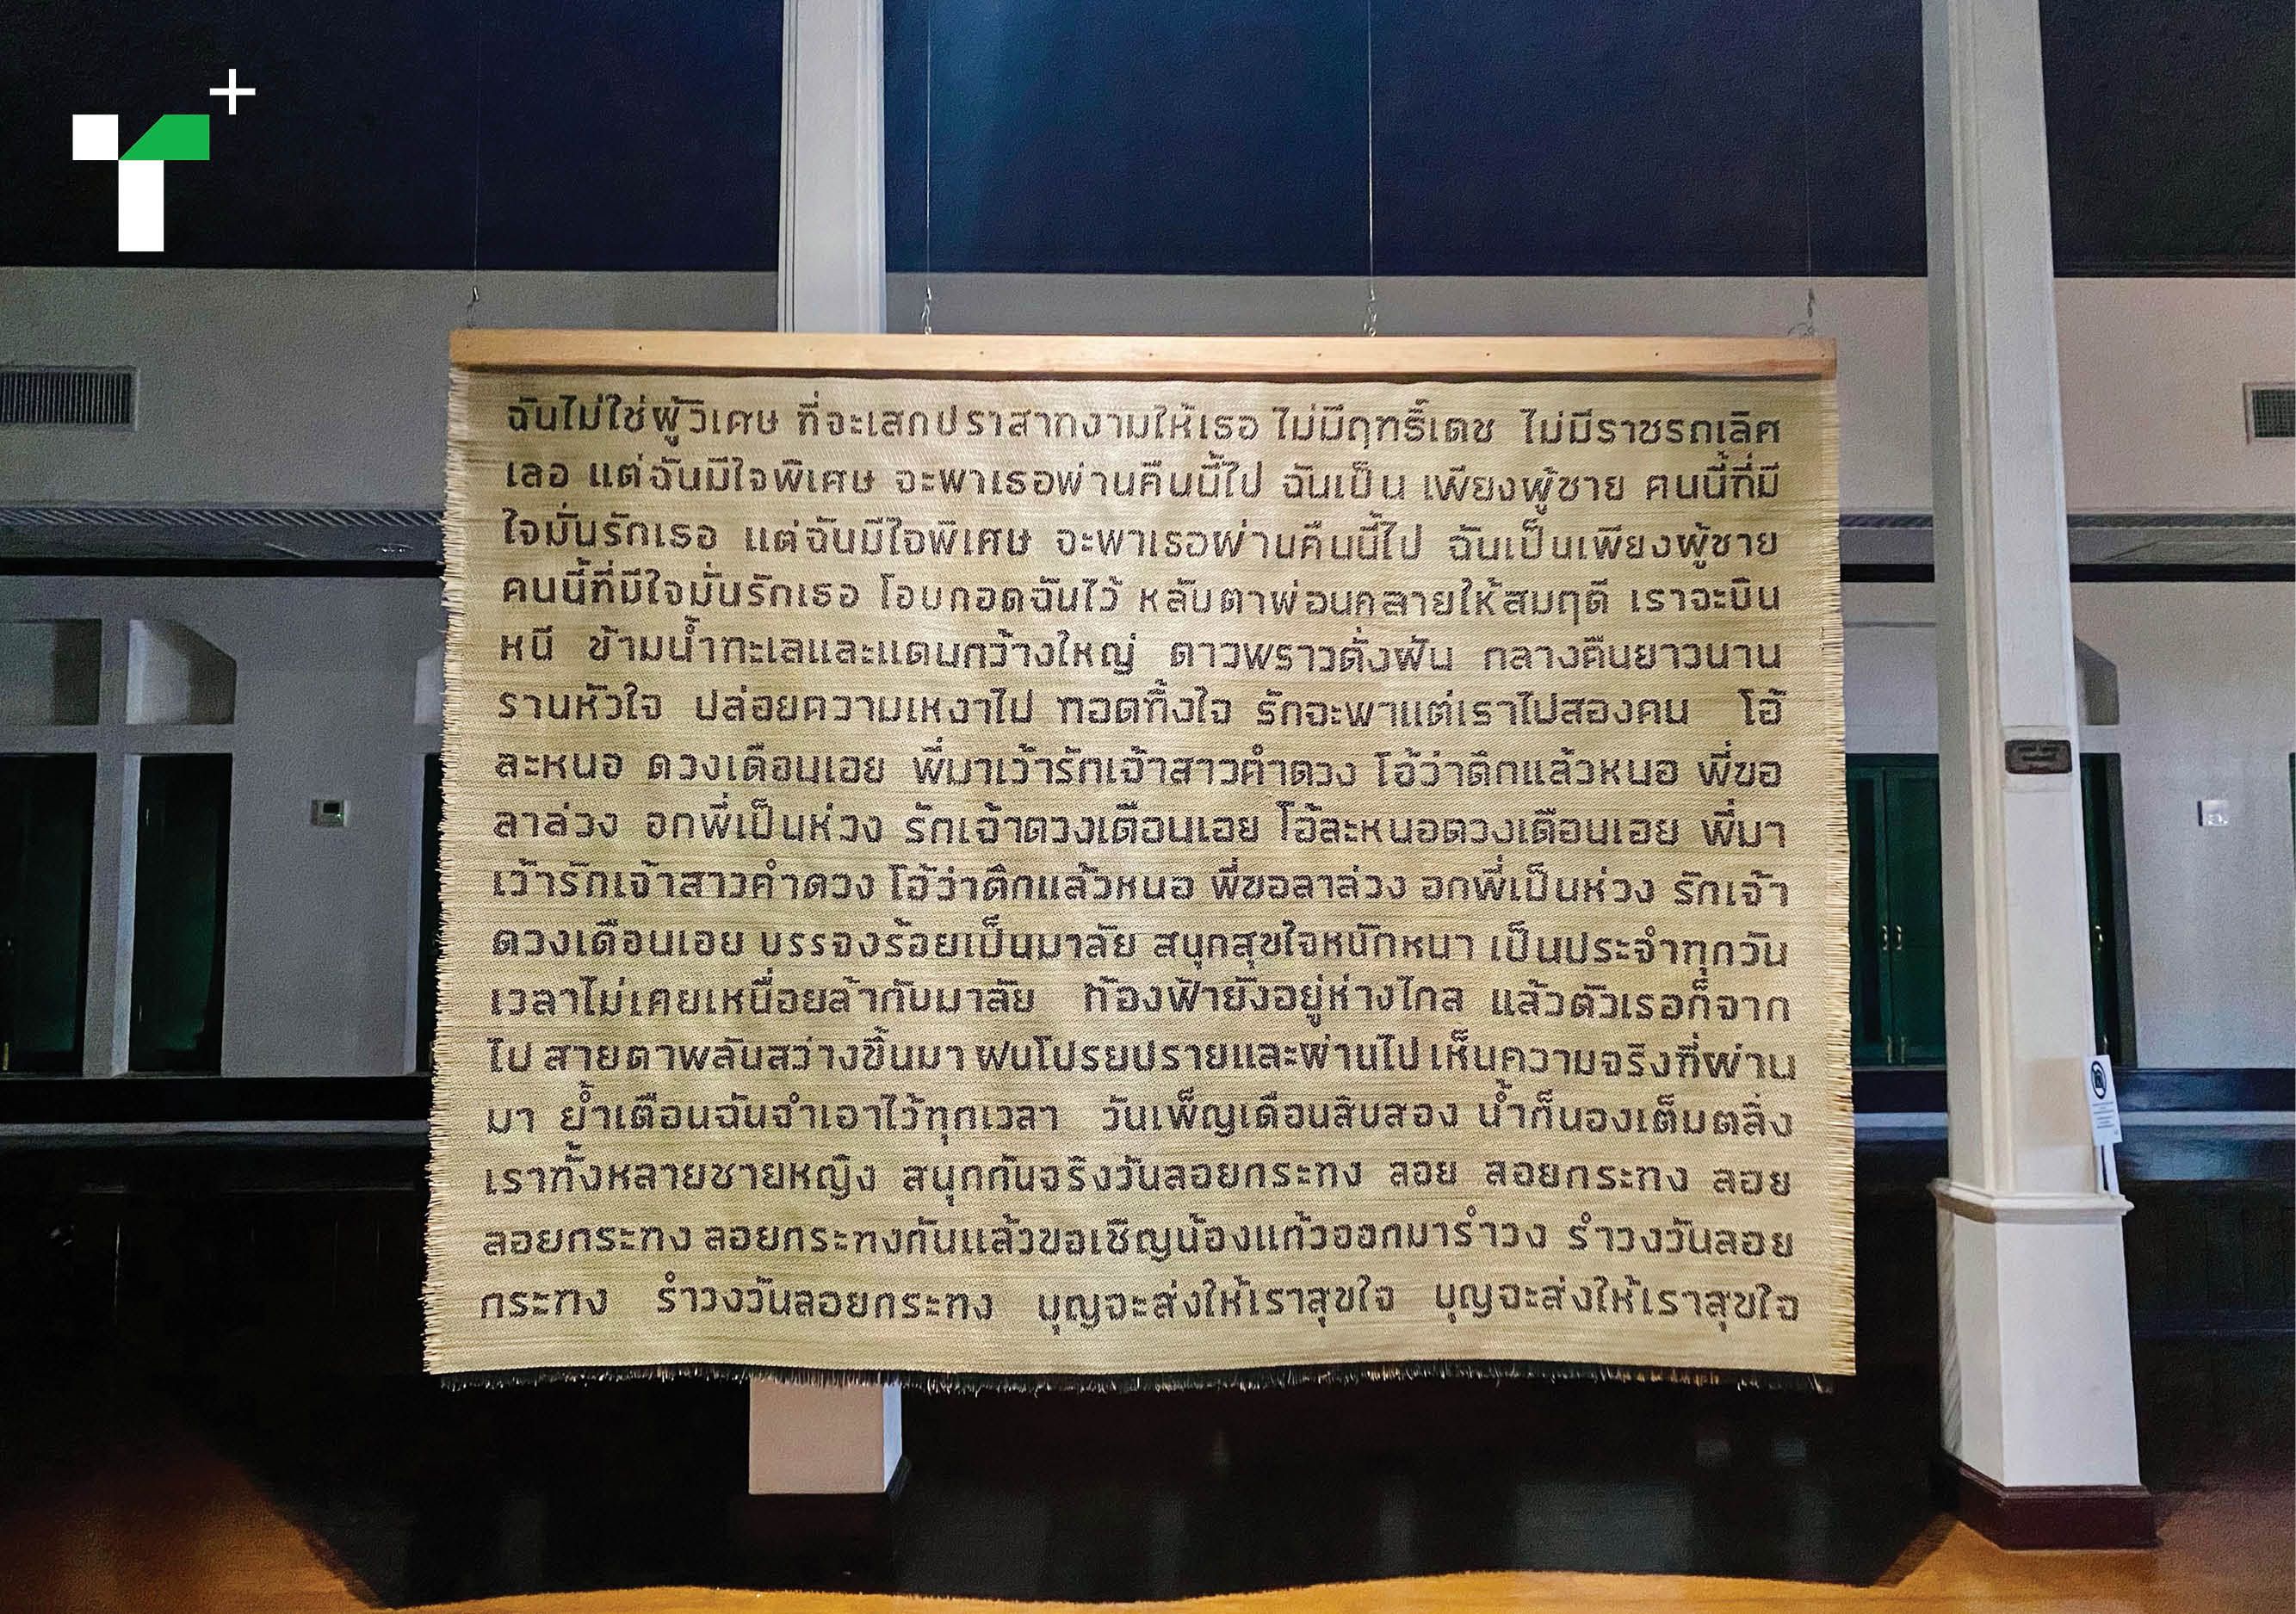 ฉันไม่ใช่ผู้วิเศษ ที่จะเสกปราสาทงามให้เธอ ไม่มีฤทธิ์เดช ไม่มีราชรถเลิศ
เลอ แต่ฉันมีใจพิเศษ จะพาเธอผ่านคืนนี้ไป ฉันเป็น เพียงผู้ชาย คนนี้ที่มี
ใจมั่นรักเธอ แต่ฉันมีใจพิเศษ จะพาเธอผ่านคืนนี้ไป ฉันเป็นเพียงผู้ชาย
คนนี้ที่มีใจมั่นรักเธอ โอบกอดฉันไว้ หลับตาผ่อนคลายให้สมฤดี เราจะบิน
หนี ข้ามน้ำทะเลและแดนกว้างใหญ่ ดาวพราวดั่งฝัน กลางคืนยาวนาน
รานหัวใจ ปล่อยความเหงาไป ทอดทิ้งใจ รักจะพาแต่เราไปสองคน โอ้
ละหนอ ดวงเดือนเอย พี่มาเว้ารักเจ้าสาวคำดวง โอ้ว่าดึกแล้วหนอ พี่ขอ
ลาล่วง อกพี่เป็นห่วง รักเจ้าดวงเดือนเอย โอ้ละหนอดวงเดือนเอย พี่มา
เว้ารักเจ้าสาวคำดวง โอ้ว่าดึกแล้วหนอ พี่ขอลาล่วง อกพี่เป็นห่วง รักเจ้า
ดวงเดือนเอย บรรจงร้อยเป็นมาลัย สนุกสุขใจหนักหนา เป็นประจำทุกวัน
เวลาไม่เคยเหนื่อยล้ากับมาลัย ท้องฟ้ายังอยู่ห่างไกล แล้วตัวเธอก็จาก
ไป สายตาพลันสว่างขึ้นมา ฝนโปรยปรายและผ่านไป เห็นความจริงที่ผ่าน
มา ย้ำเตือนฉันจำเอาไว้ทุกเวลา วันเพ็ญเดือนสิบสอง น้ำก็นองเต็มตลิ่ง
เราทั้งหลายชายหญิง สนุกกันจริงวันลอยกระทง ลอย ลอยกระทง ลอย
ลอยกระทง ลอยกระทงกันแล้วขอเชิญน้องแก้วออกมารำวง รำวงวันลอย
กระทง รำวงวันลอยกระทง บุญจะส่งให้เราสุขใจ บุญจะส่งให้เราสุขใจ